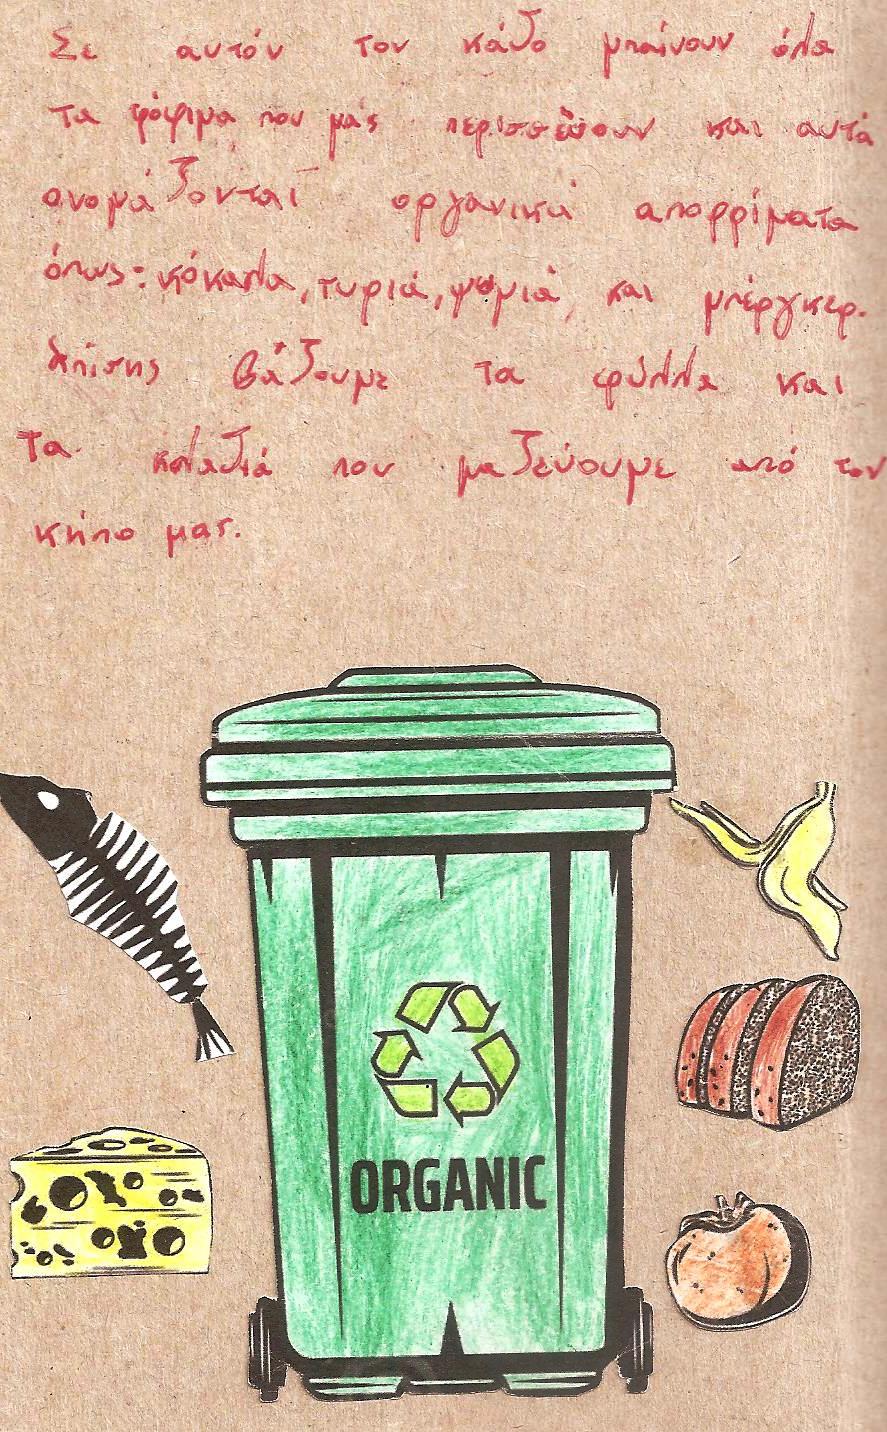 Σε αυτόν τον κάδο μπαίνουν όλα
τα φόφιμα που μάς περισσέυουν και αυτά
ονομάζονται οργανικά απορρίματα
όπως: κόκαλα, τυριά, ψωμιά, και μπέργκερ.
επίσης βάζουμε τα φύλλα και
τα κλαδιά που μαζεύουμε από τον
κήπο μας.
ORGANIC